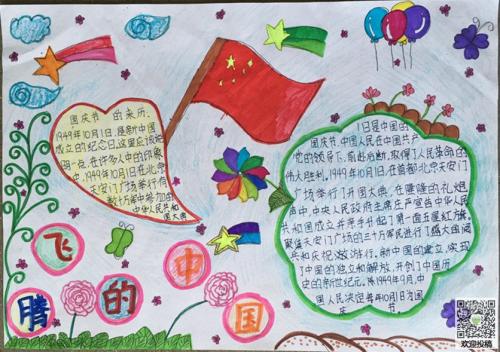 国庆节 的来历.
1949年10月1日,是新中国
成立的纪念日.这里应该说
明一点,在许多人中的印象
中,1949年10月1日在北京
天安门广场举行有
数十万军中参加的
中华人民共和
国大典
1日是中国的
国庆节,中国人民在中国共产
党的领导下,前赴后继,取得了人民革命的
伟大胜利。1949年10月1日,在首都北京天安门
广场举行了开国大典,在隆隆的礼炮
声中,中央人民政府主席庄严宣告中华人民共
和国成立并亲手升起了第一面五星红旗。
聚集天安门广场的三十万军民进行了盛大阅
兵和庆祝游行。新中国的建立,实现
了中国的独立和解放,开创了中国历
史的新世纪元。1949年9月,中
国人民 每年10月1日为国
庆 节
飞
腾
的
中
国
欢迎投稿